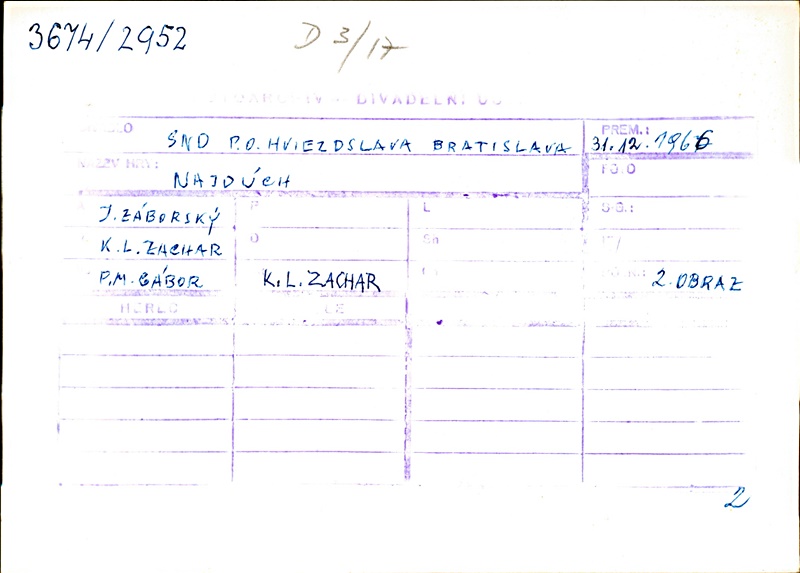 3674/2952
D 3/17
DIVADELNÍ
PREM.:
SND P.O. HVIEZDSLAVA BRATISLAVA 31.12.1966
NÁZEV HRY: FOTO
NAJDÚCH
J. ZÁBORSKÝ L
K. L. ZACHAR O Sn
P. M. GÁBOR K. L. ZACHAR 2. OBRAZ
HEREC
2